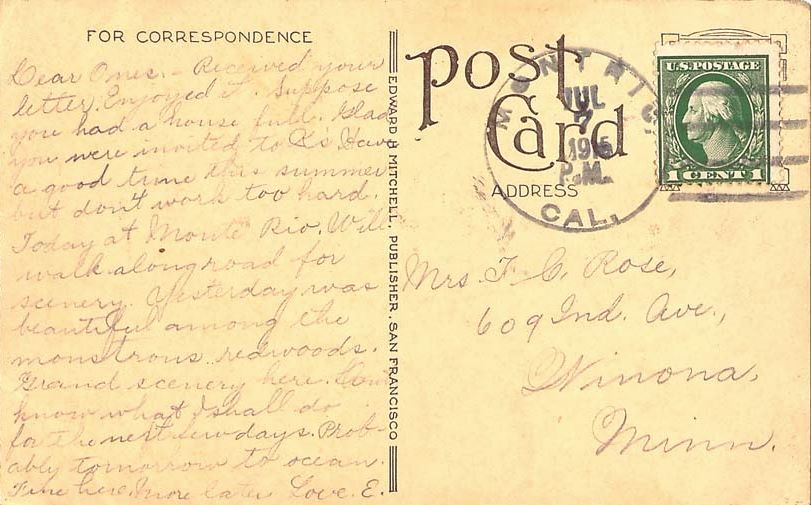 FOR CORRESPONDENCE
Dear Ones. - Received your
letter. Enjoyed it. Suppose
you had a house full. Glad
you were invited to K's. Have
a good time this summer
but don't work too hard.
Today at Monte Rio. Will
walk along road for
scenery. Yesterday was
beautiful among the
monstrous redwoods.
Grand scenery here. Don't
know what I shall do
for the next few days. Prob-
ably tomorrow to ocean.
Fine here. More later Love. E.
EDWARD H. MITCHELL, PUBLISHER, SAN FRANCISCO
Post
Card
ADDRESS
MONTE RIO
JUL
7
P.M.
CAL.
U.S. POSTAGE
1 CENT 1
Mrs. F. C. Rose,
609 Ind. Ave.,
Winona,
Minn.